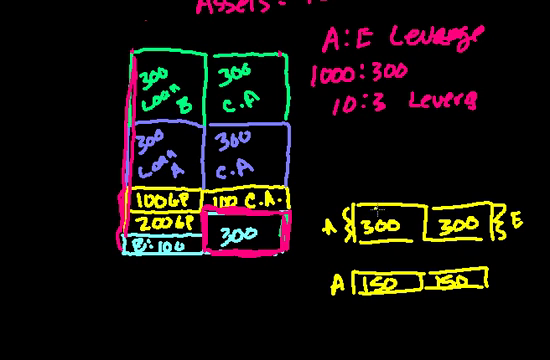 Assets:
A:E Leverage
1000:300
10:3 Leverg
300 Loan B
300 C.A
300 Loan A
300 C.A
100GP
100 C.A.
200GP
B: 100
300
A 300 300 E
A 150 150